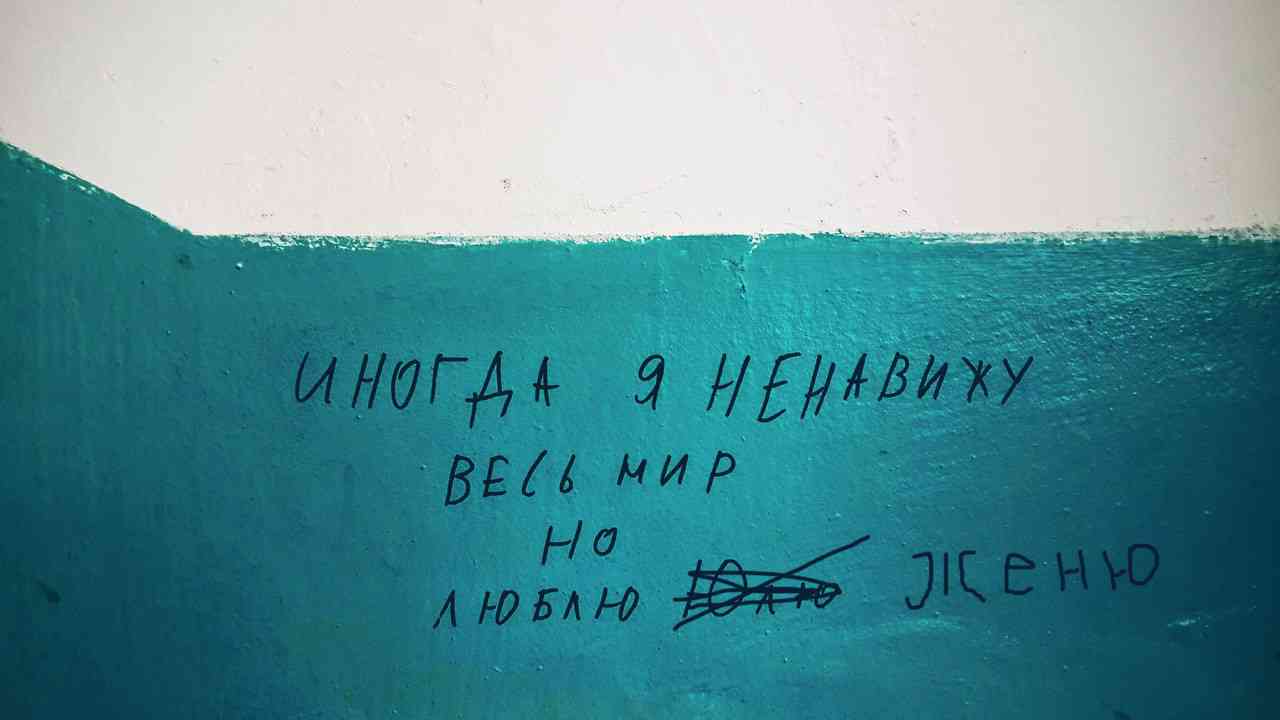 ИНОГДА Я НЕНАВИЖУ
ВЕСЬ МИР
НО
ЛЮБЛЮ Юлю ЖеНЮ